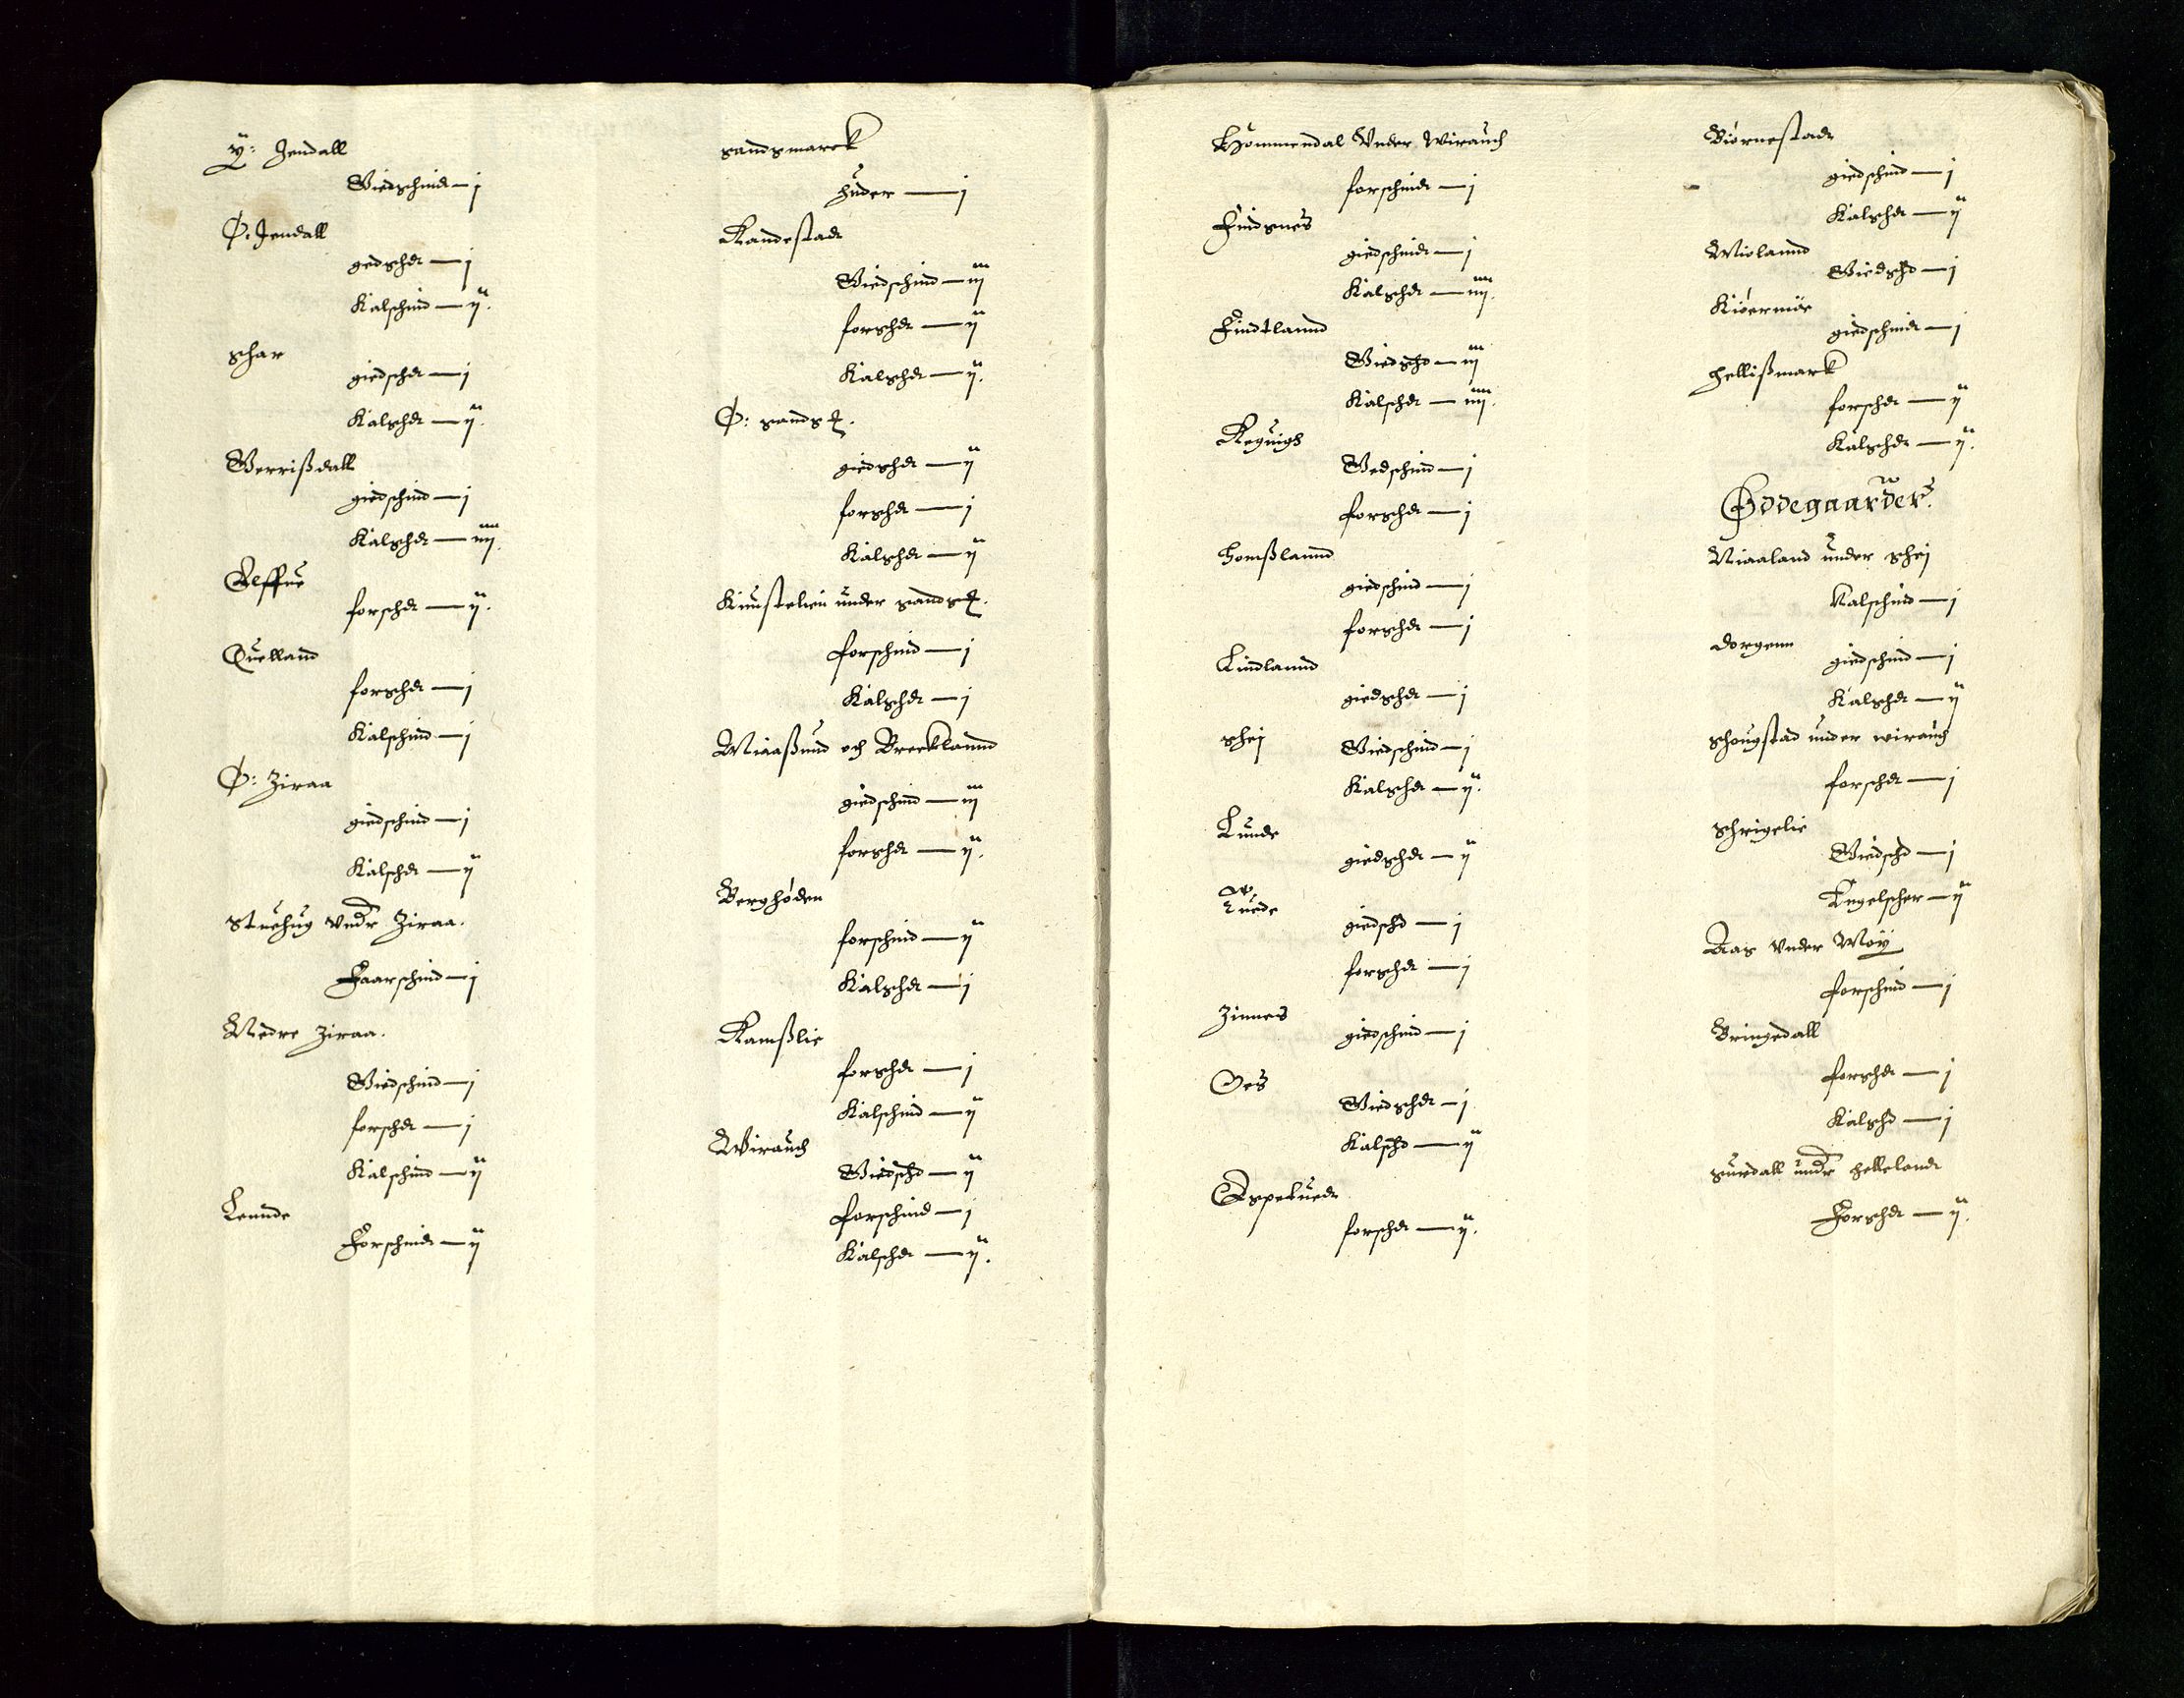 Y: Jendall
Giedschind — j
Ø: Jendall
gedschd — j
Kalschind — ij.
schar
giedschd — j
Kalschd — ij.
Werrißdall
giedschind — j
Kalschd — iiij.
forschd — ij.
Quelland
forschd — j
Kalschind — j
Ø: Ziraa
giedschind — j
Kalschd — ij
stuehug vndr Ziraa.
Faarschind — j
Nedre Ziraa.
Giedschind — j
forschd — j
Kalschind — ij
Leunde
Forschind — ij
sandsmarck
huder — j
Randestad
Giedschind — iij
forschd — ij
Kalschd — ij.
Ø: sands
giedschd — ij
forschd — j
Kalschd — ij
under sands
forschind — j
Kalschd — j
Miaaßund och Brecklannd
giedschind — iij
forschd — ij.
Berghøden
forschind — ij
Kalschd — j
Ramßlie
forschd — j
Kalschind — ij
Wirauch
Giedschd — ij
forschind — j
Kalschd — ij.
Hommendal Vnder Wirauch
forschind — j
Findsnes
giedschind — j
Kalschd — iiij.
Findtlannd
Giedschd — iij
Kalschd — iiij.
Reguigh
Gedschind — j
forschd — j
Homßlannd
giedschind — j
forschd — j
Lindlannd
giedschd — j
schej
Giedschind — j
Kalschd — ij.
Lunde
giedschd — ij
giedschd — j
forschd — j
Zinnes
giedschind — j
Oes
Giedschd — j
Kalschd — ij
Espeluedt
forschd — ij.
Biørnestad
giedschind — j
Kalschd — ij
Miolannd
Giedschd — j
Kiøermoe
giedschind — j
hellißmark
forschd — ij
Kalschd — ij.
Ødegaarder.
Niaaland under schej
Kalschind — j
dorgenn
giedschind — j
Kalschd — ij
schougstad under wirauch
forschd — j
schrigelie
Giedschd — j
Engelscher — ij
Aas vnder Moÿ
forschind — j
Bringedall
forschd — j
Kalschd — j
suedall undr hellelandt
Forschd — ij.